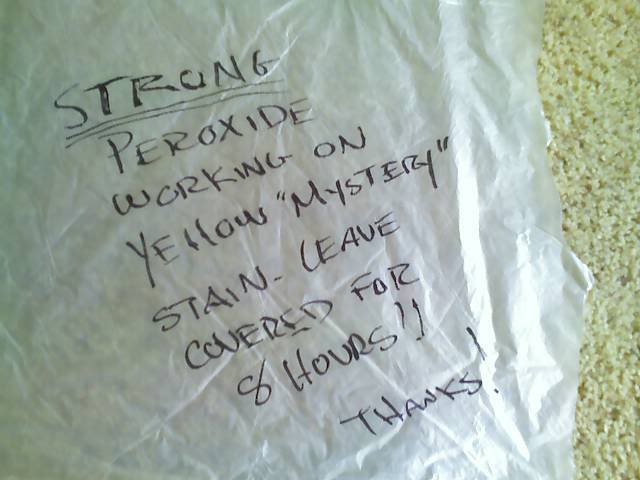 STRONG
PEROXIDE
WORKING ON
YELLOW "MYSTERY"
STAIN- LEAVE
COVERED FOR
8 HOURS!!
THANKS!